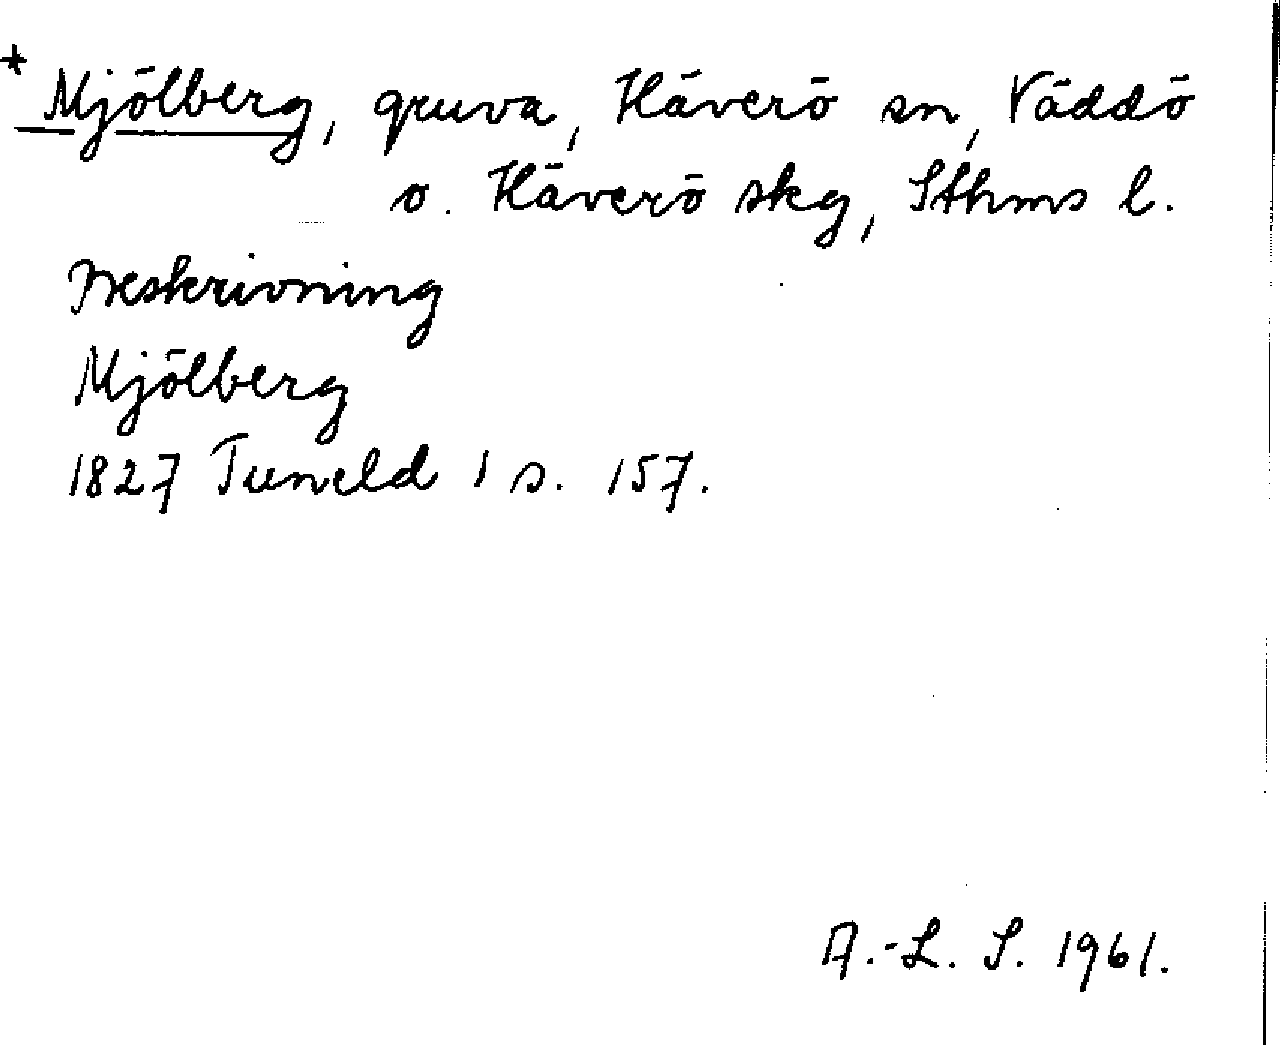 + Mjölberg, gruva, Häverö sn, Väddö
o. Häverö skg, Sthms l.
Beskrivning
Mjölberg
1827 Tuneld 1 s. 157.
A.-L. S. 1961.